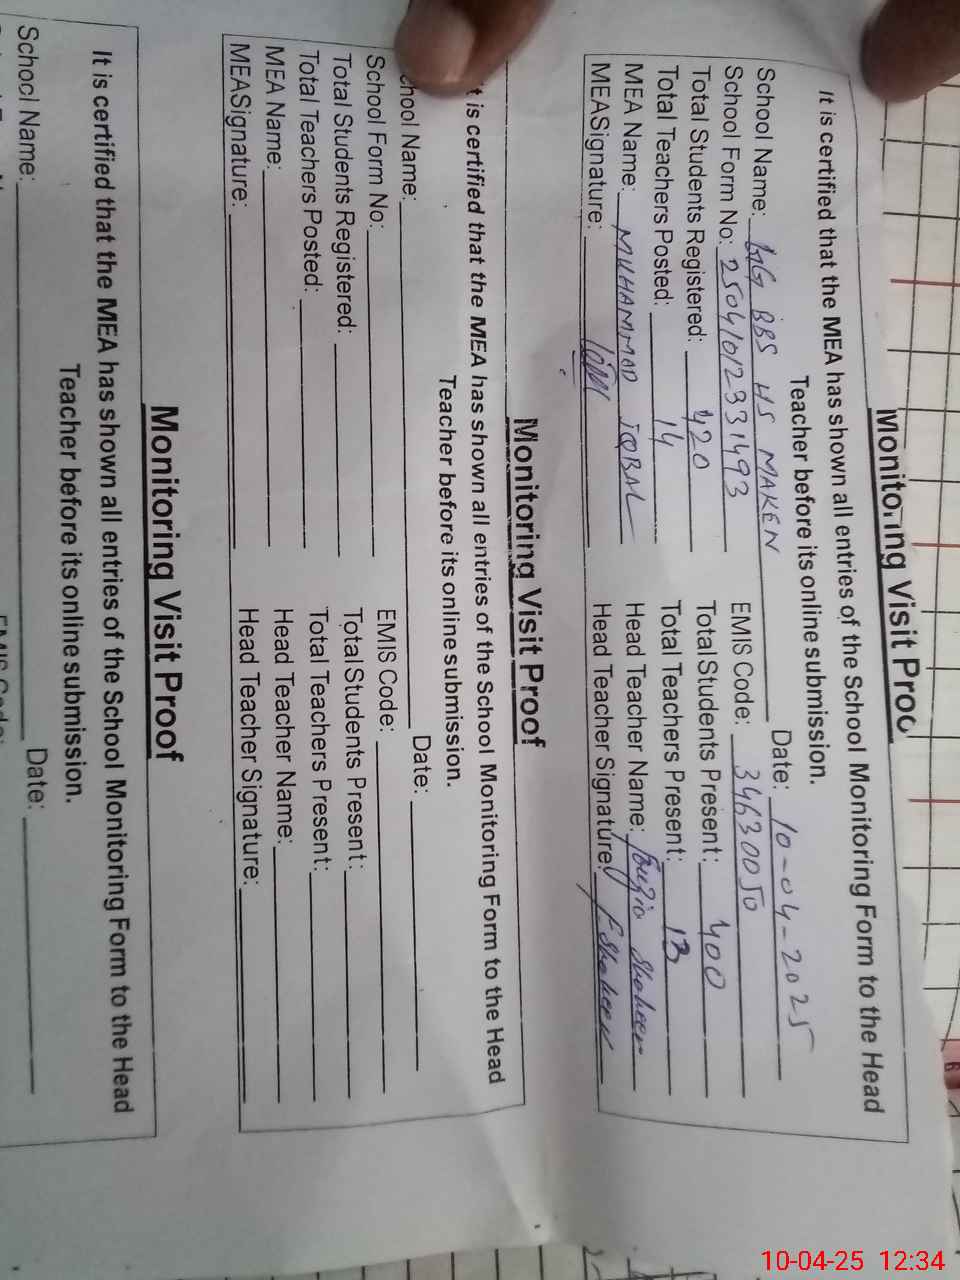 Monitoring Visit Proo
It is certified that the MEA has shown all entries of the School Monitoring Form to the Head
Teacher before its online submission.
School Name: GG BBS HS MAKEN Date: 10-04-2025
School Form No: 2504101233 1493 EMIS Code: 34630050
Total Students Registered: 420 Total Students Present: 400
Total Teachers Posted: 14 Total Teachers Present: 13
MEA Name: MUHAMMAD IQBAL Head Teacher Name: Fouzia Shaheen
MEASignature: Head Teacher Signature: F Shaheen
Monitoring Visit Proof
t is certified that the MEA has shown all entries of the School Monitoring Form to the Head
Teacher before its online submission.
chool Name: Date:
School Form No: EMIS Code:
Total Students Registered: Total Students Present:
Total Teachers Posted: Total Teachers Present:
MEA Name: Head Teacher Name:
MEASignature: Head Teacher Signature:
Monitoring Visit Proof
It is certified that the MEA has shown all entries of the School Monitoring Form to the Head
Teacher before its online submission.
School Name: Date:
10-04-25 12:34